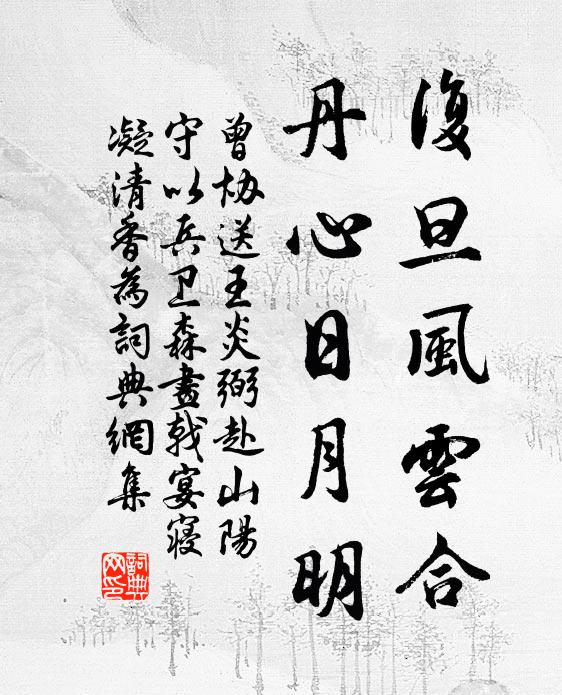 復旦風雲合
丹心日月明
曾協送王炎弼赴山陽
守以兵卫森畫戟宴寢
凝清香為詞典網集
詞典
网印